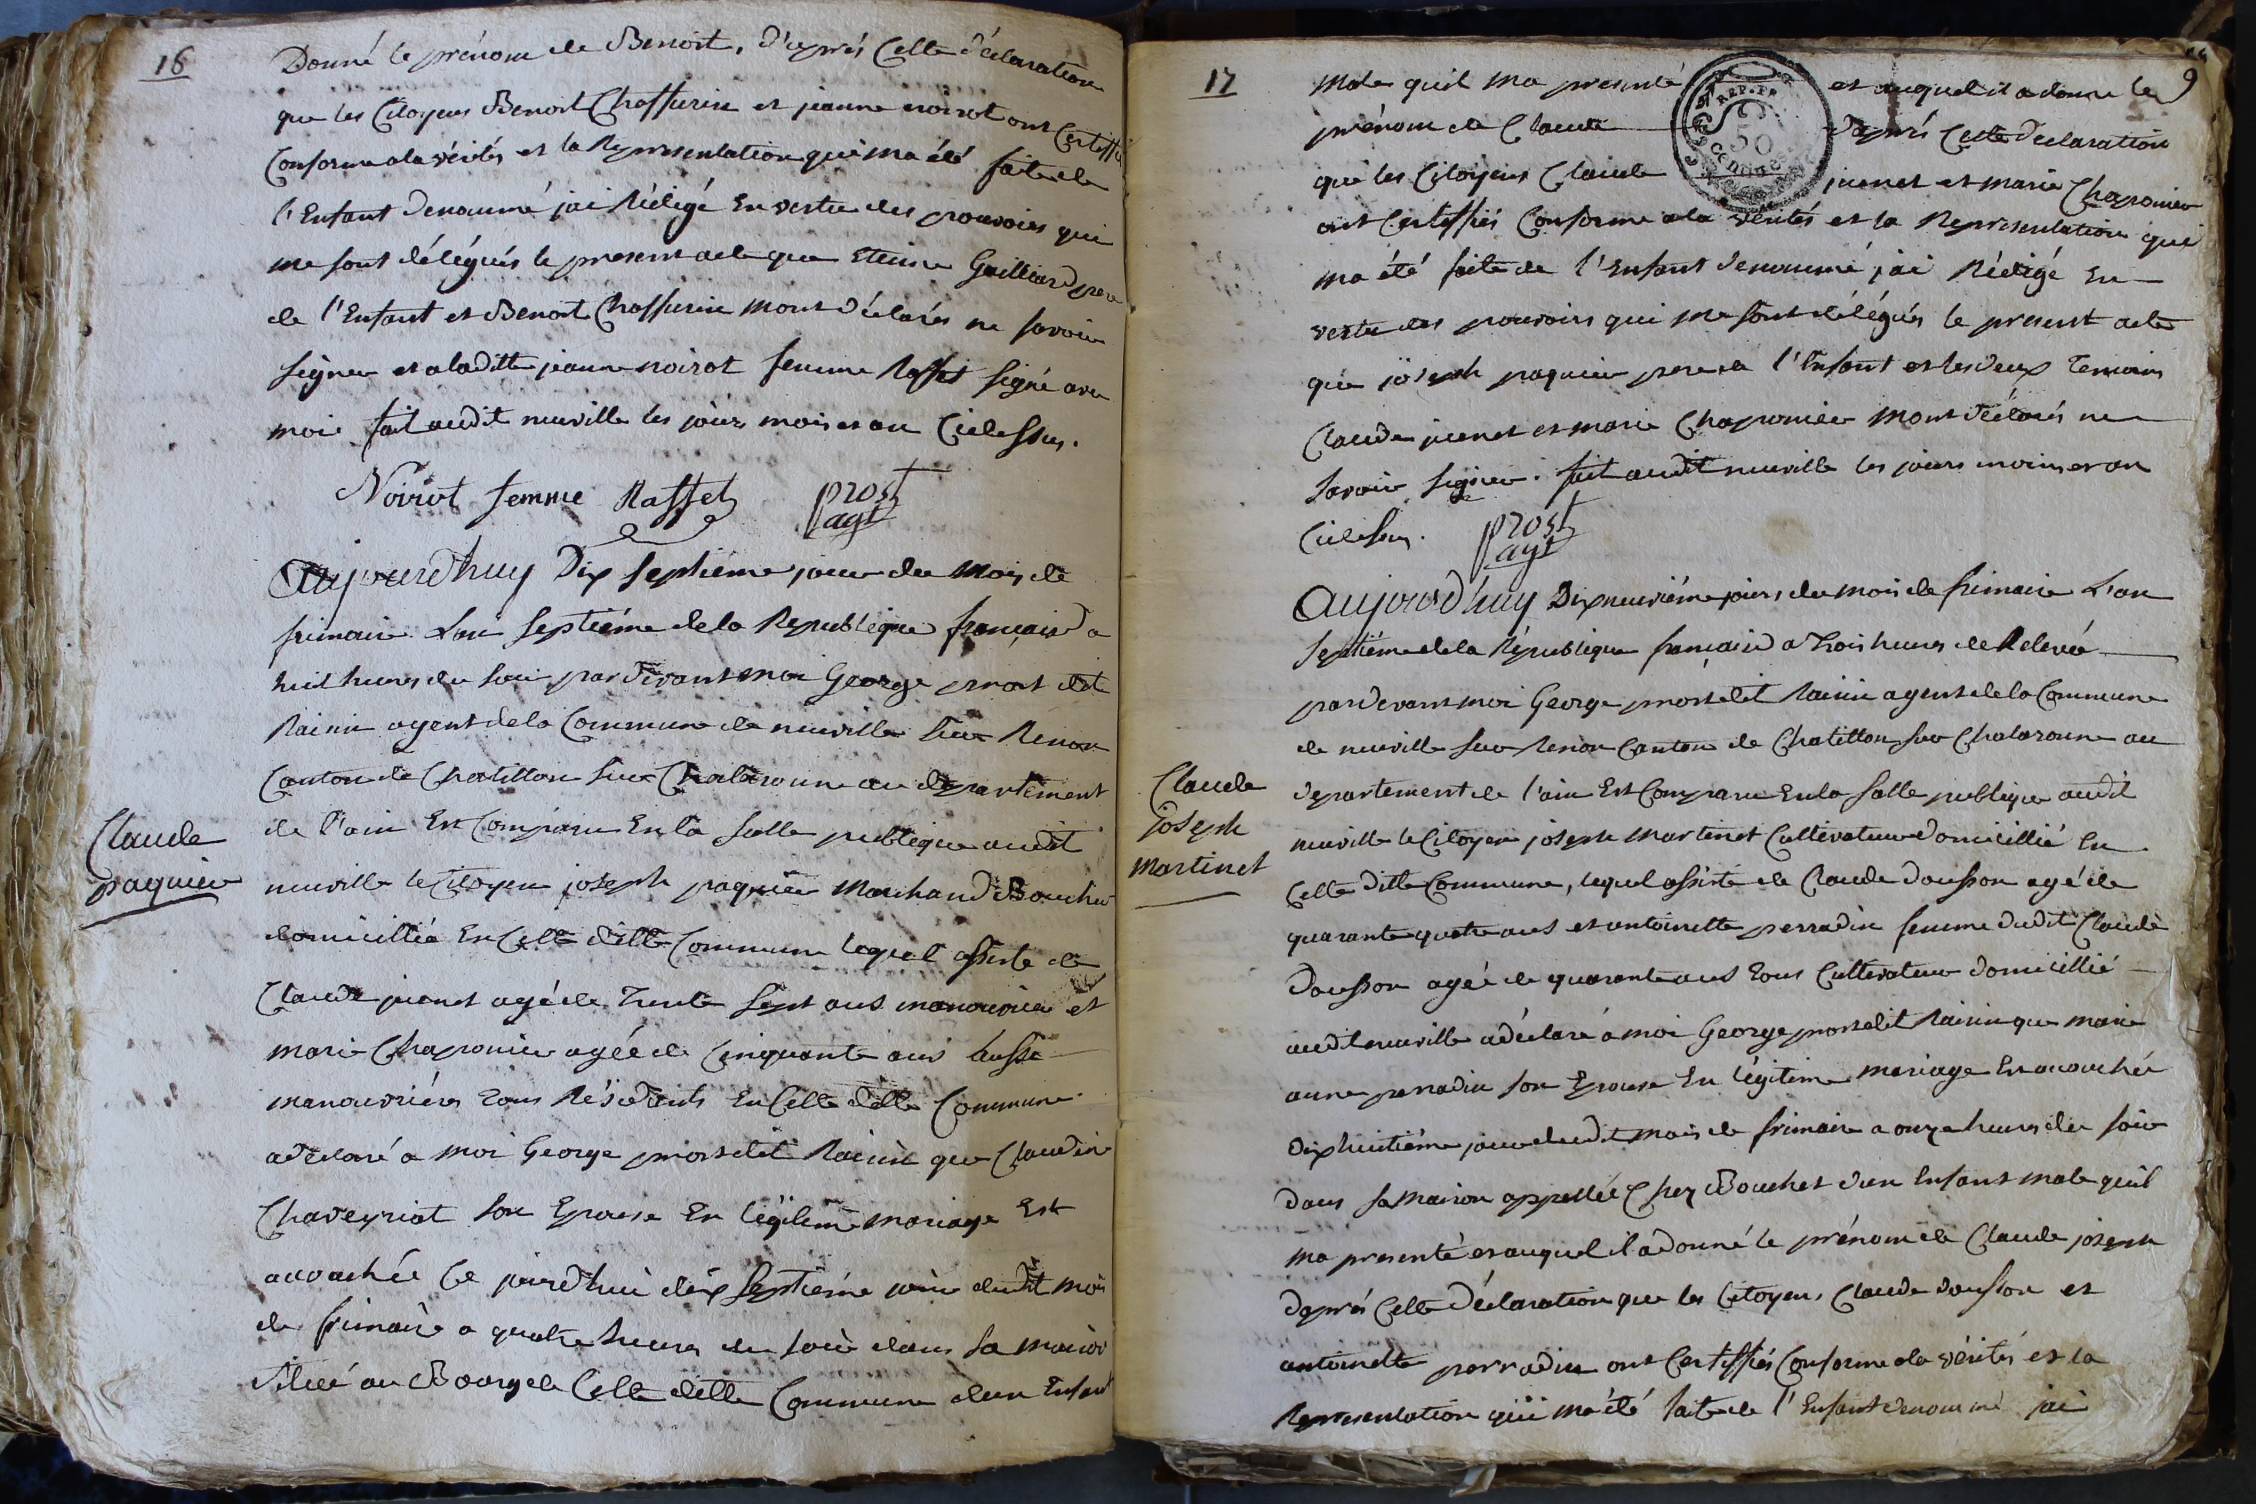 16
Donné le prénom de Benoit, d'après Cette déclaration
que les Citoyens Benoit Chaffurin et jeanne noirot ont Certiffié
Conforme a la vérités et la Representation qui ma été faite de
l'Enfant denommé jai Rédigé En vertu des pouvoirs qui
me sont délégués le present acte que Etienne Guilliard pere
de l'Enfant et Benoit Chaffurin mont déclarés ne savoir
signer et a laditte jeanne noirot femme Raffet signé avec
moi fait audit neuville les jours mois et an Cidessus.
Noirot femme Raffet prost
agt
Aujourdhuy Dix septiéme jour du mois de
frimaire Lan septiéme de la Republique français a
huit heures du soir pardevant moi George prost dit
Rainin agent de la Commune de neuville sur Renon
Canton de Chatillon sur Chalaronne au departement
de l'ain Est Comparu En la salle publique audit
neuville le Citoyen joseph paquier Marchand Boucher
domicillié En Cette ditte Commune lequel assisté de
Claude juenet agé de Trente sept ans manouvrier et
marie Chaponier agée de Cinquante ans aussi
manouvriére tous Résidants En Cette ditte Commune
a déclaré a moi George prost dit Rainin que Claudine
Chaveyriat son Epouse En légitime mariage Est
accouchée Ce jourdhui dix septiéme jour dudit mois
de frimaire a quatre heures du soir dans sa maison
située au Bourg de Cette ditte Commune d'un Enfant
Claude
paquier
17
9
male quil ma presenté et auquel il a donné le
prénom de Claude d'après Cette déclaration
que les Citoyens Claude juenet et marie Chaponier
ont Certiffiés Conforme a la vérités et la Representation qui
ma été faite de l'Enfant denommé jai Rédigé En
vertu des pouvoirs qui me sont délégués le present acte
que joseph paquier pere de l'Enfant et les deux Temoins
Claude juenet et marie Chaponier mont déclarés ne
savoir signer. fait audit neuville les jours mois et an
Cidessus. prost
agt
REP. FR.
50
Aujourdhuy Dixneuviéme jours du mois de frimaire L'an
septiéme de la République français a Trois heures de Relevée
pardevant moi George prost dit Rainin agent de la Commune
de neuville sur Renon Canton de Chatillon sur Chalaronne au
departement de l'ain Est Comparu En la salle publique audit
neuville le Citoyen joseph Martinet Cultivateur domicillié En
Cette ditte Commune, lequel assisté de Claude dousson agé de
quarante quatre ans et antoinette perradin femme dudit Claude
Dousson agée de quarante ans tous Cultivateur domicillié
audit neuville a déclaré a moi George prost dit Rainin que marie
anne perradin son Epouse En légitime mariage Est accouchée
dixhuitiéme jour dudit mois de frimaire a onze heures du soir
dans sa maison appellée Chez Bouchet d'un Enfant male quil
ma presenté et auquel il a donné le prénom de Claude joseph
daprés Cette déclaration que les Citoyens Claude dousson et
antoinette perradin ont Certiffiés Conforme a la vérités et la
Representation qui ma été faite de l'Enfant denommé jai
Claude
joseph
Martinet